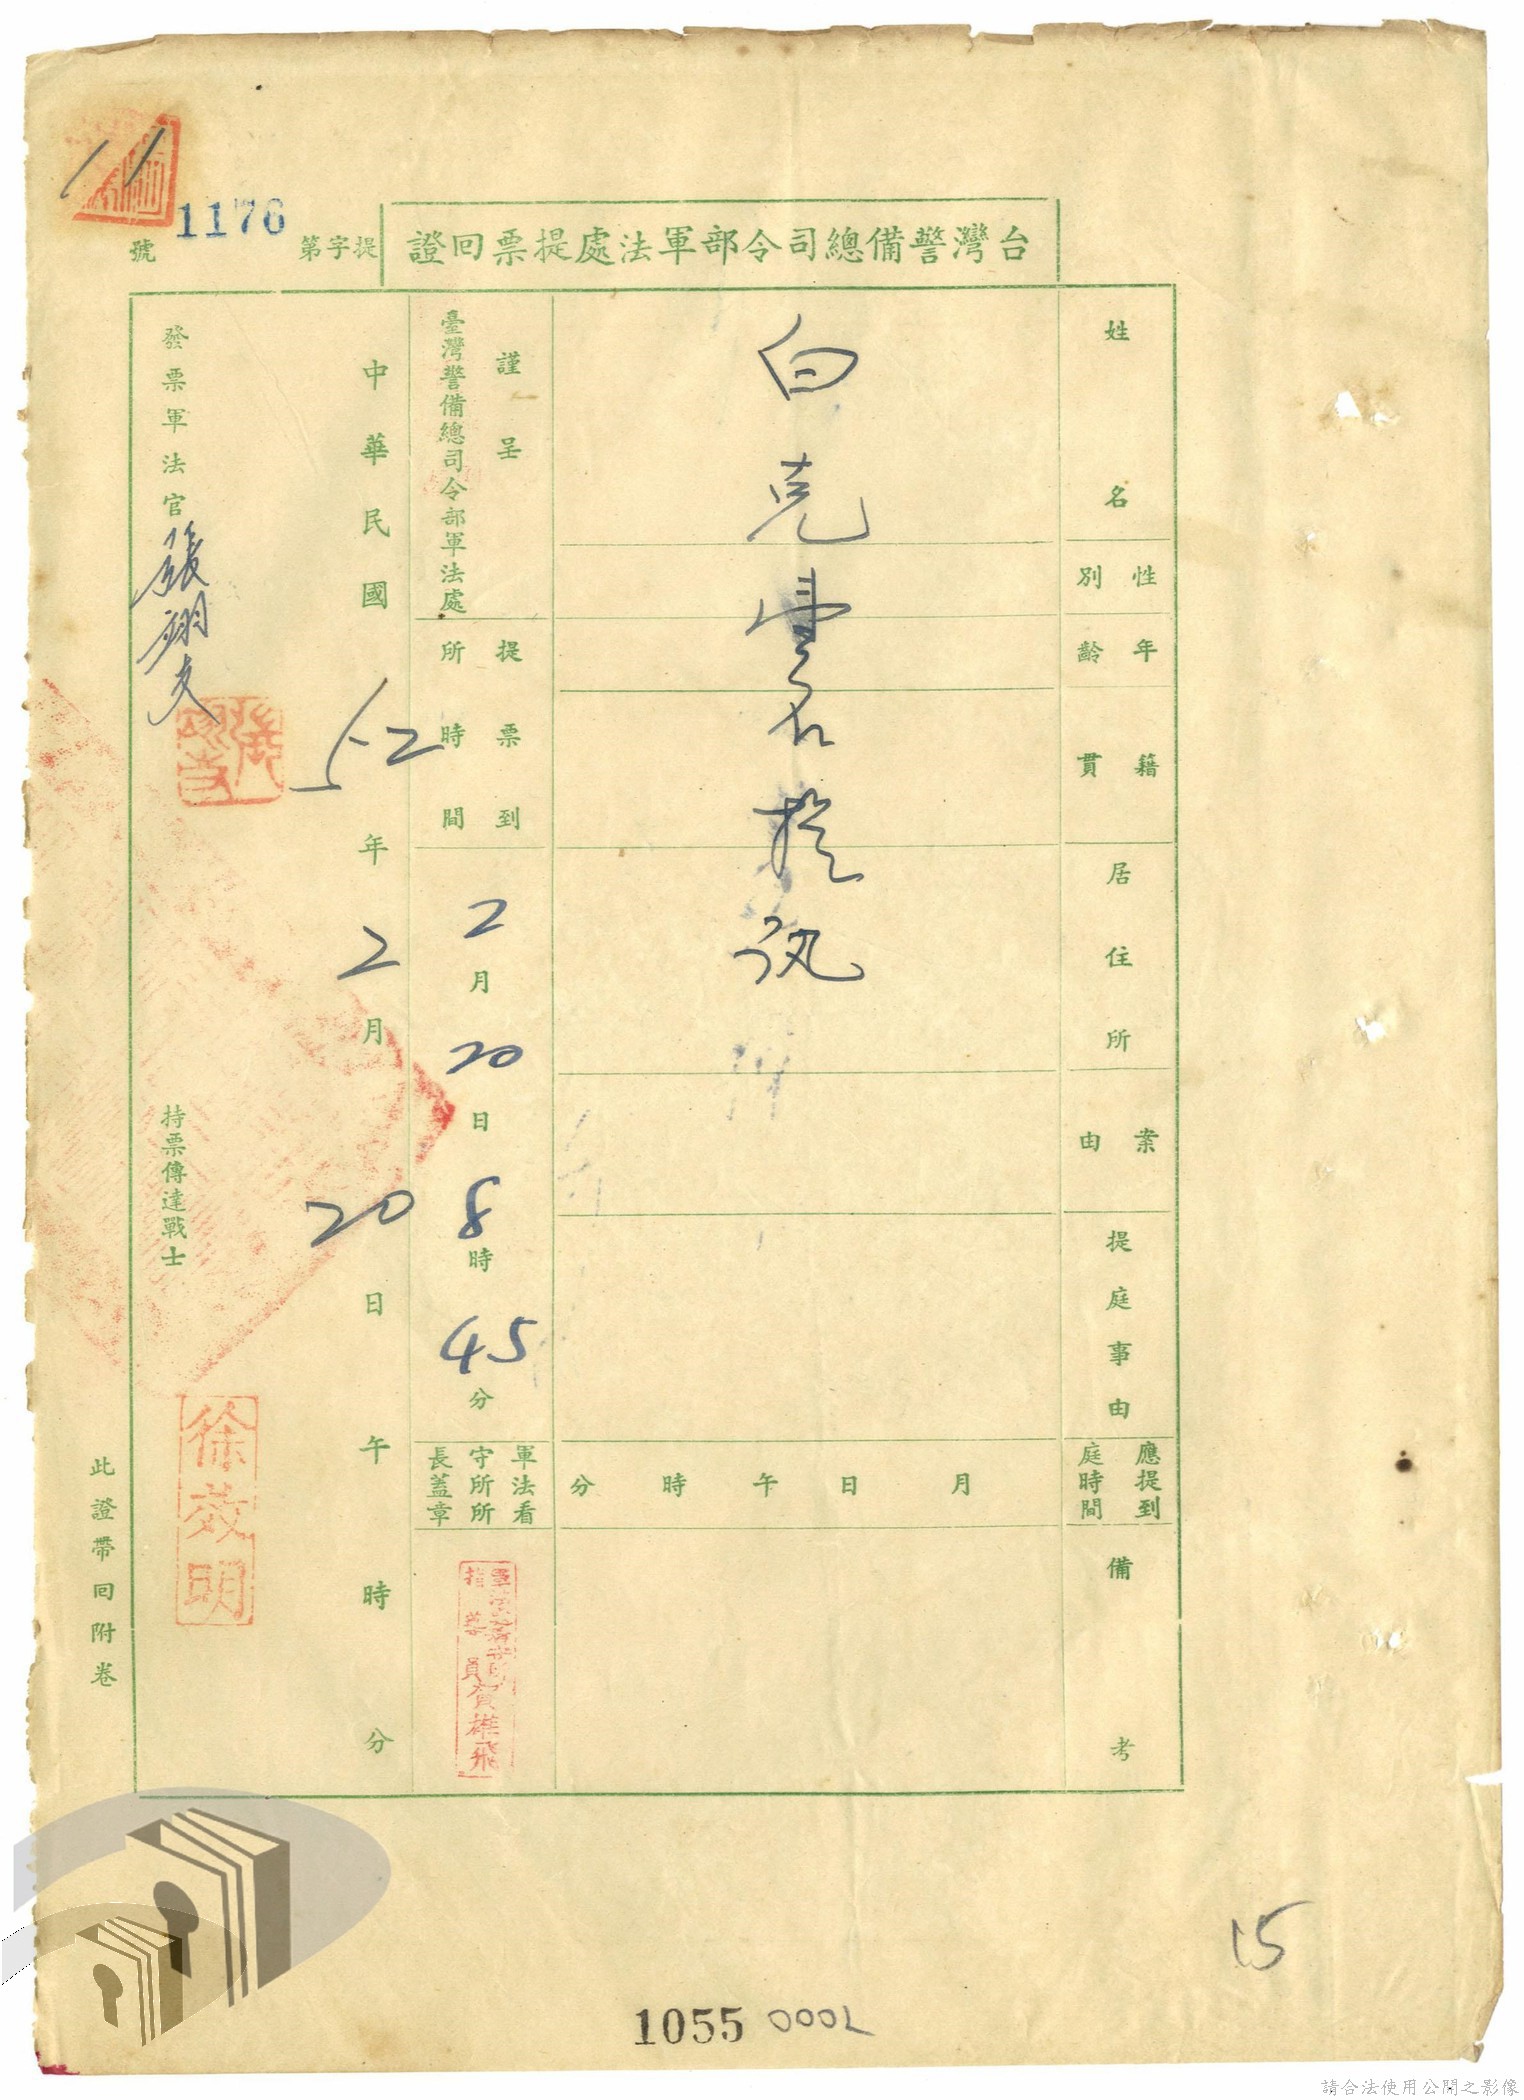 台灣警備總司令部軍法處提票回證
提字第 1176 號
姓名
性別
年齡
籍貫
居住所
案由
提庭事由
應提到庭時間
備考
白克壹名提訊
月 日 午 時 分
謹呈
臺灣警備總司令部軍法處
提票到所時間
2月20日8時45分
軍法看守所所長蓋章
軍法看守所
指導員賀雄飛
中華民國52年2月20日 午 時 分
發票軍法官 張翊文
持票傳達戰士
徐效明
此證帶回附卷
15
1055 0002
請合法使用公開之影像